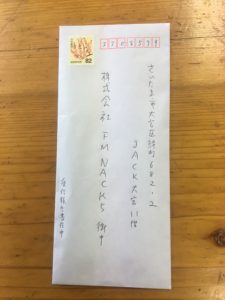 82
3308579
さいたま市大宮区錦町682-2
JACK大宮11階
株式会社 FM NACK5 御中
受信報告書在中